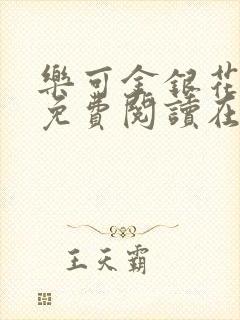 樂可金銀花
免費閱讀在
王天霸